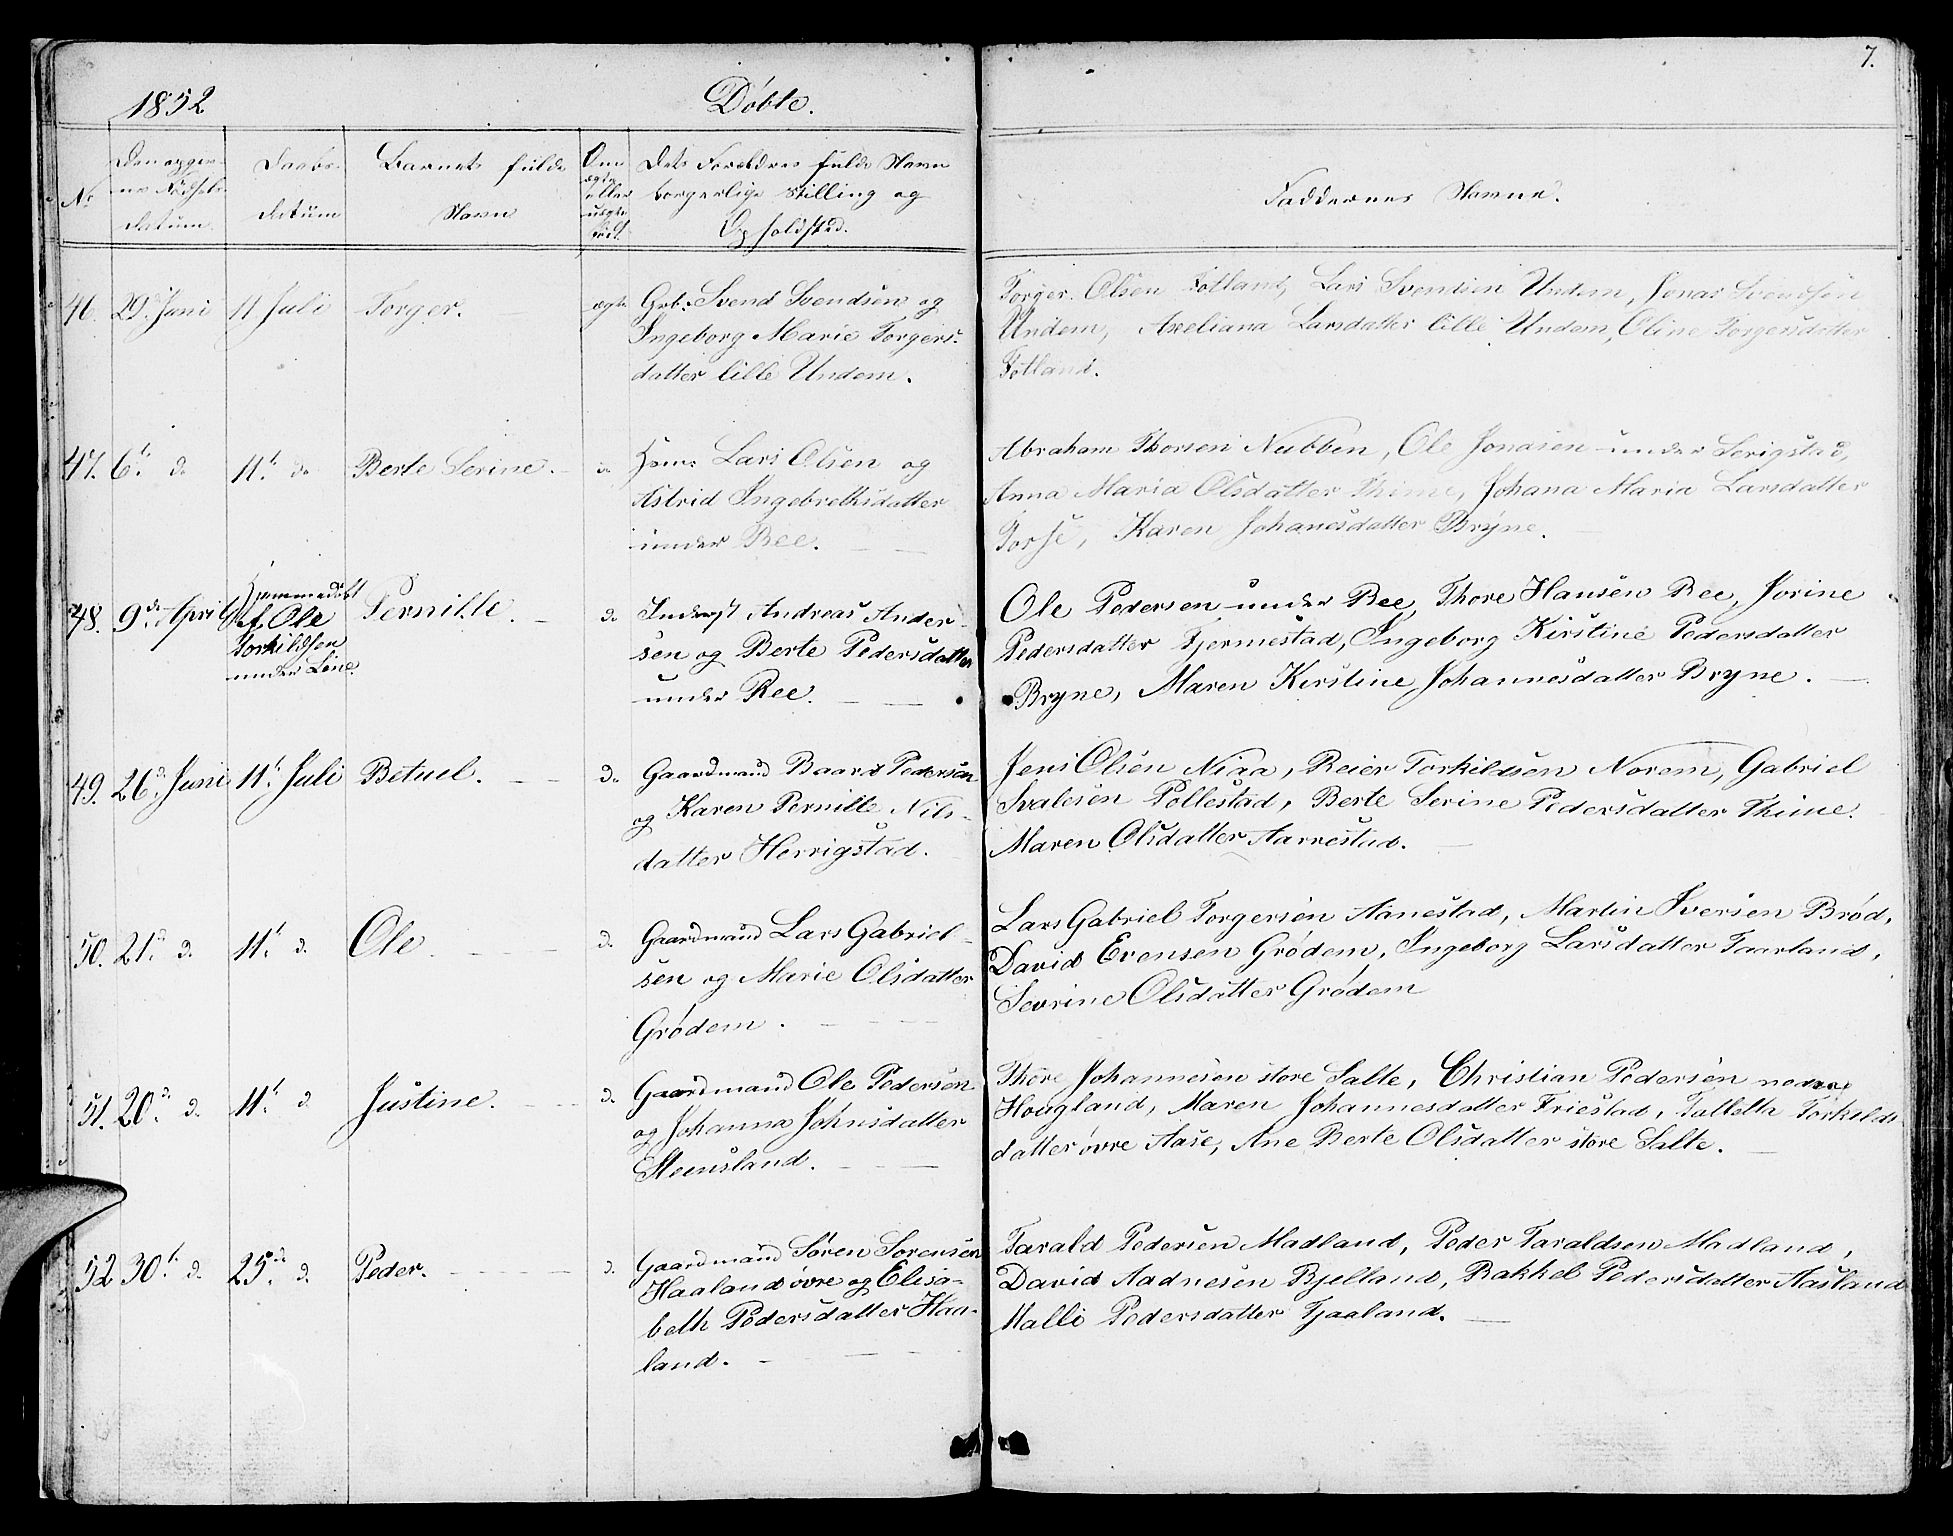 7.
1852
Döbte.
No
Den opgivne Födsels datum
Daabs datum
Barnets fulde Navn
Om ægte eller uægte
Dets Foreldres fulde Navn
borgerlige Stilling og
Opholdsted.
Faddernes Navne.
46. 29. Juni 11 Juli Torger. ægte Grb. Svend Svendsen og
Ingeborg Marie Torgers-
datter lille Undem.
Torger Olsen Fotland, Lars Svendsen Undem, Jonas Svendsen
Undem, Axeliana Larsdatter lille Undem, Oline Torgersdatter
Fotland.
47. 6te do 11te do Berte Serine. do Lars Olsen og
Astrid Ingebretksdatter
under Ree.
Abraham Thorsen Nubben, Ole Jonasen under Serigstad,
Anna Maria Olsdatter Thime, Johana Maria Larsdatter
Johanesdatter Bryne.
48. 9de April Hjemmedöbt
af Ole
Torkildsen
under Line
Pernille. do Inderst Andreas Ander-
sen og Berte Pedersdatter
under Ree.
Ole Pedersen under Ree, Thore Hansen Ree, Jorine
Pedersdatter Tjermestad, Ingeborg Kirstine Pedersdatter
Bryne, Maren Kirstine Johannesdatter Bryne.
49. 26de Juni 11te Juli Betuel. do Gaardmand Baard Pedersen
og Karen Pernille Nils-
datter Herrigstad.
Jens Olsen Niaa, Reier Torkildsen Norem, Gabriel
Svalesen Pollestad, Berte Serine Pedersdatter Thime.
Maren Olsdatter Aarrestad.
50. 21de d. 11te d. Ole. d. Gaardmand Lars Gabriel-
sen og Marie Olsdatter
Grødem.
Lars Gabriel Torgersen Aanestad, Martin Iversen Brød,
David Evensen Grødem, Ingeborg Larsdatter Taarland,
Sevrine Olsdatter Grødem
51. 20de d. 11te d. Justine. d. Gaardmand Ole Pedersen
og Johanna Johnsdatter
Steensland.
Thore Johannesen store Salte, Christian Pedersen nedre
Hougland, Maren Johannesdatter Friestad, Talleth Torkilds
datter övre Aase, Ane Berte Olsdatter store Salte.
52 30te d. 25de d. Peder. d. Gaardmand Søren Sorensen
Haaland övre og Elisa-
beth Pedersdatter Haa-
land.
Tarald Pedersen Madland, Peder Taraldsen Madland,
David Aadnesen Bjelland, Rakkel Pedersdatter Aasland
Malli Pedersdatter Tjaaland.